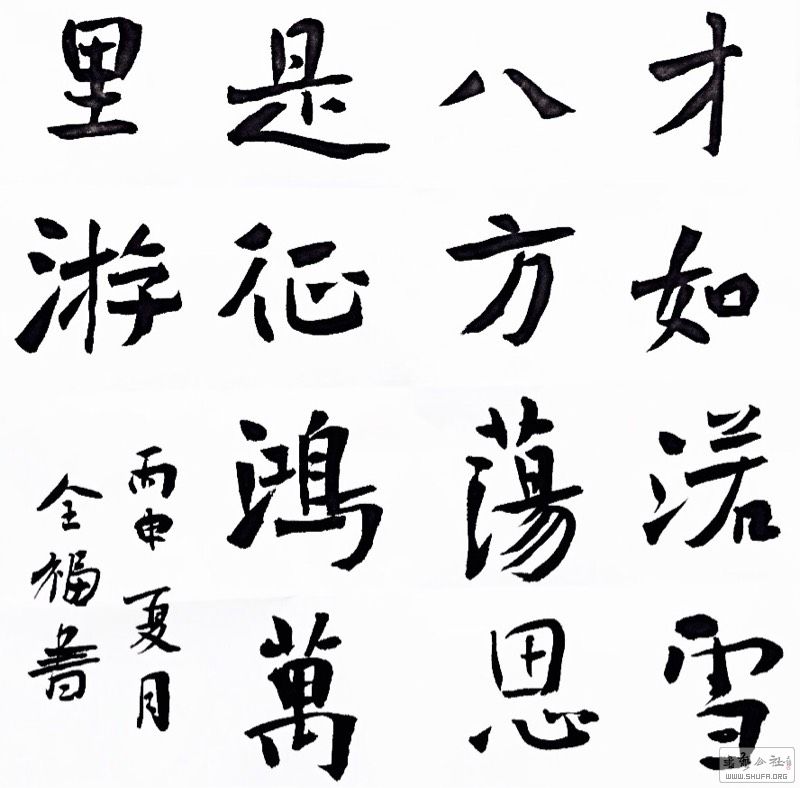 才如渃雪
八方蕩思
是征鴻萬
里游
丙申夏月
全福書
WWW.SHUFA.ORG